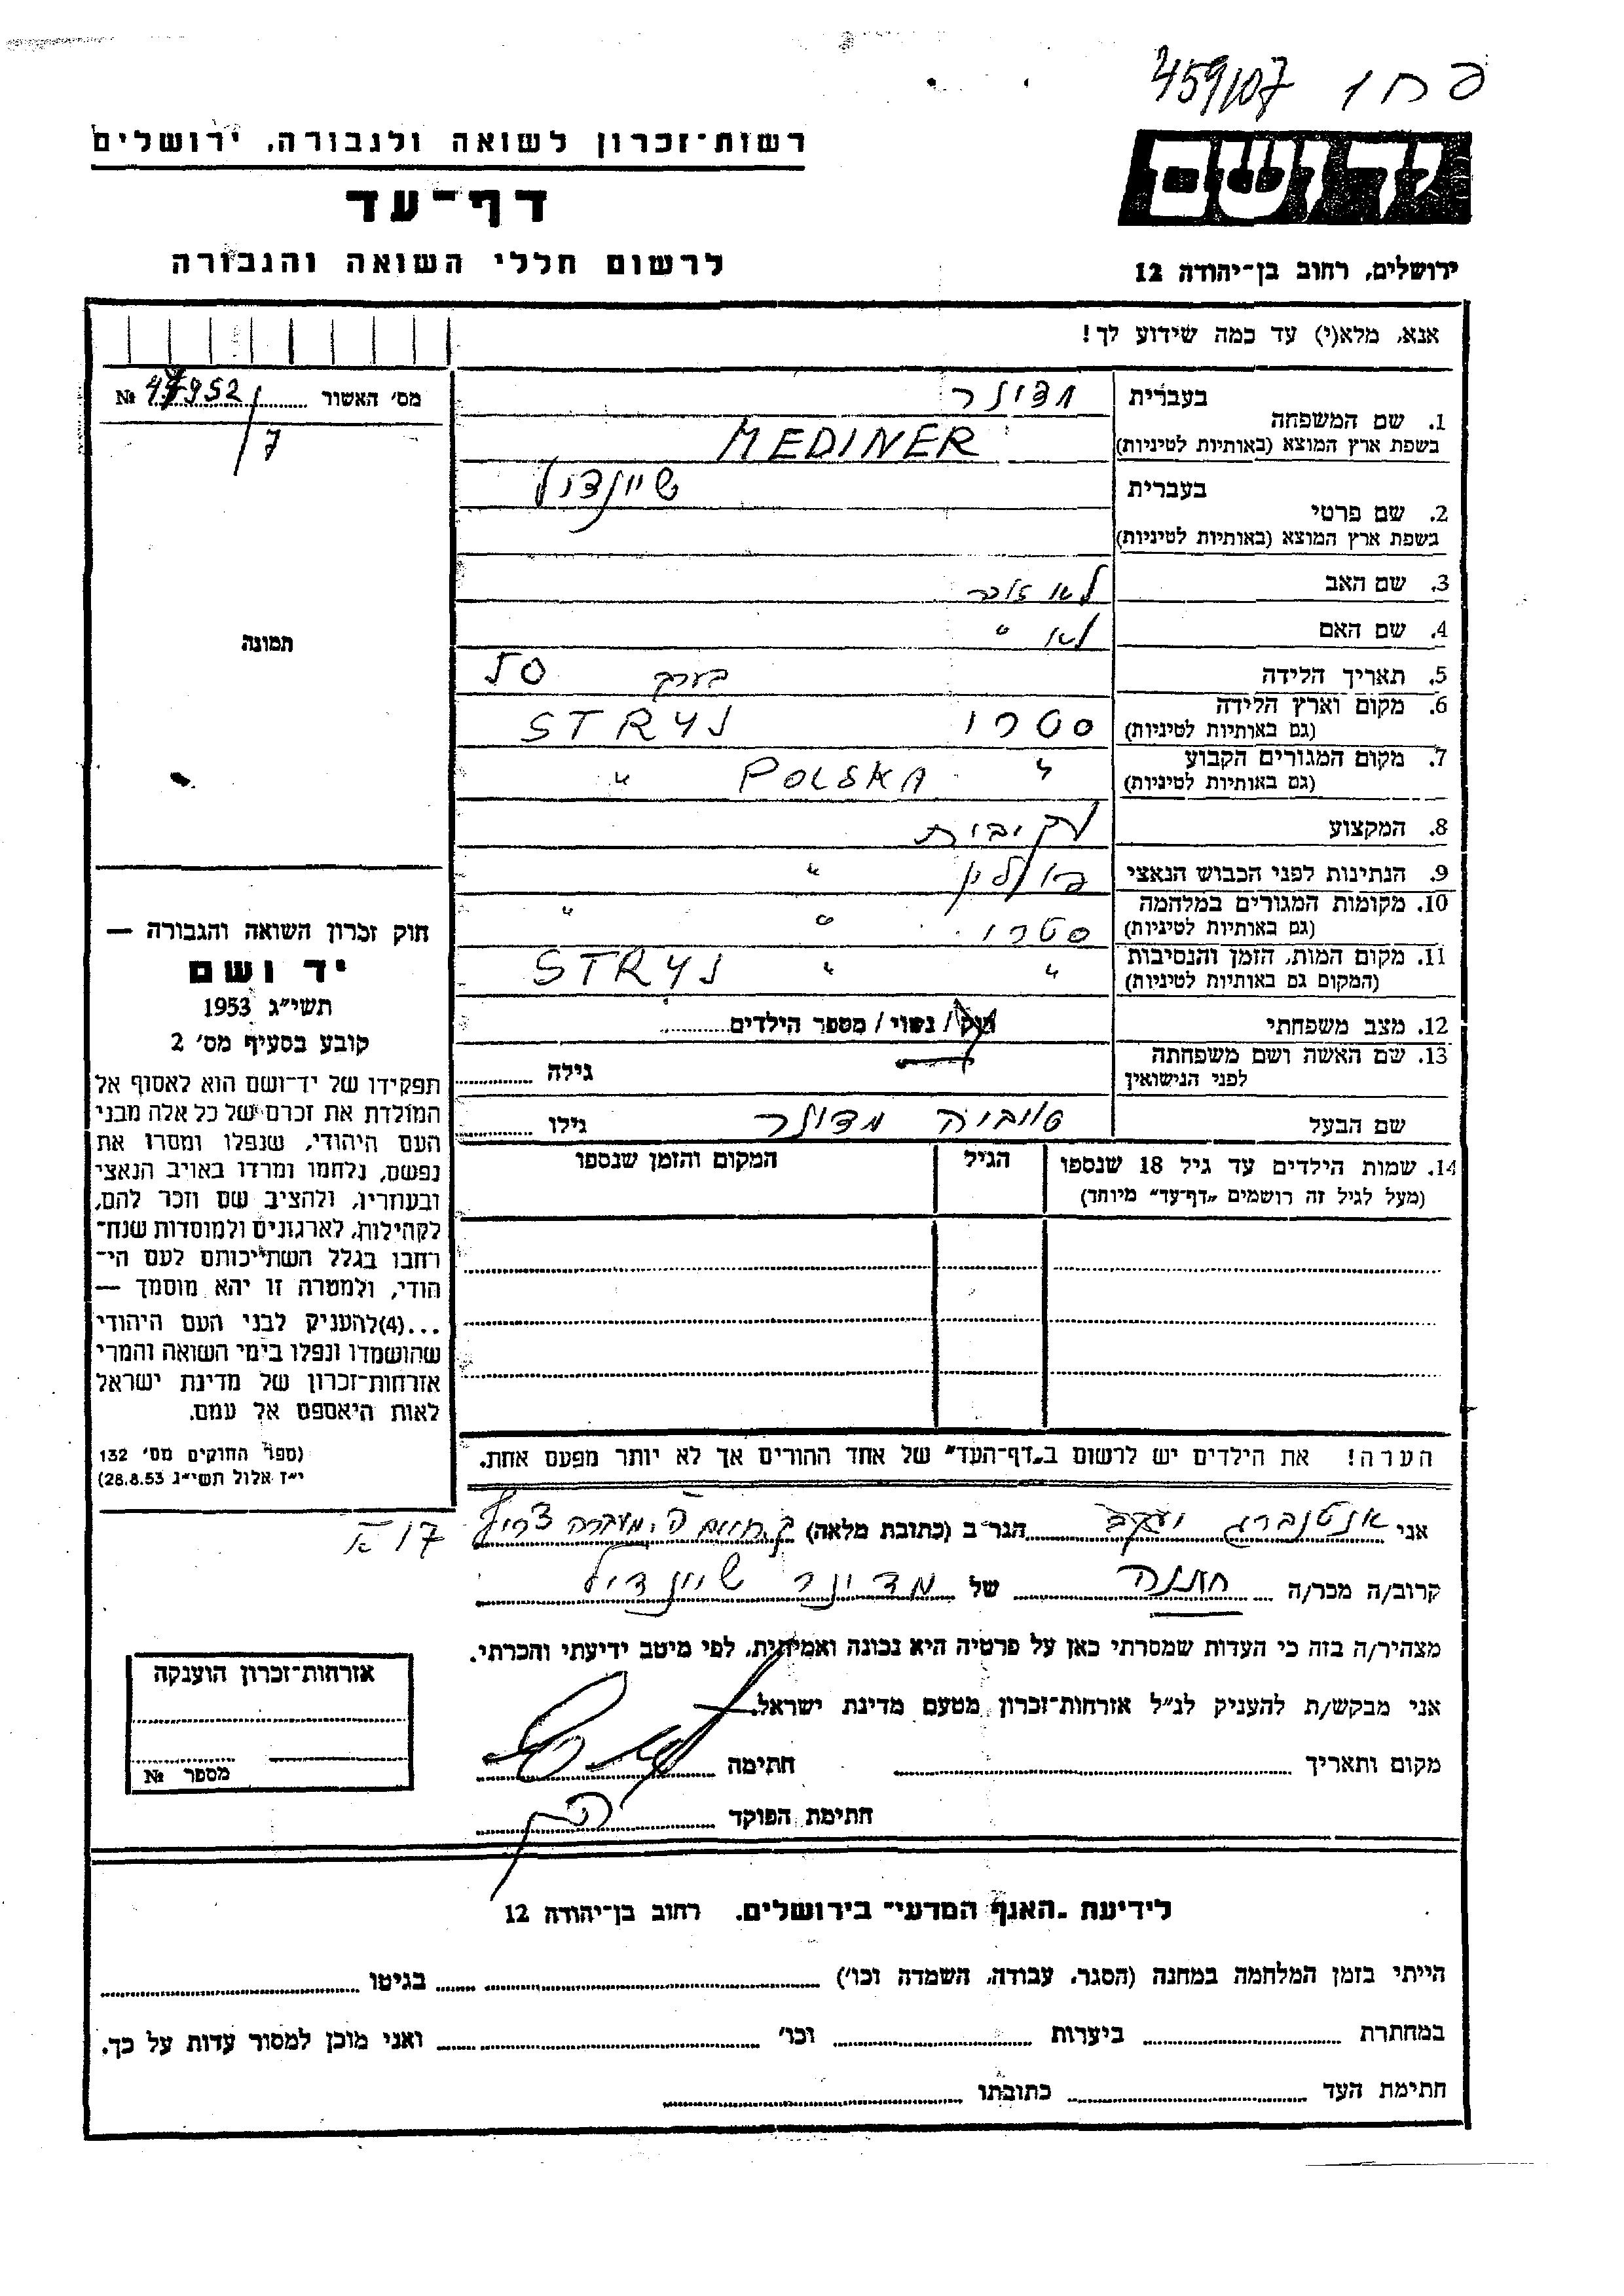 459/107 פ ח ו
רשות־זכרון לשואה ולגבורה, ירושלים
דף־עד
לרשום חללי השואה והגבורה
יד ושם
ירושלים, רחוב בן־יהודה 12
אנא, מלא(י) עד כמה שידוע לך!
מס׳ האשור № 952
7
תמונה
1. שם המשפחה
בעברית
בשפת ארץ המוצא (באותיות לטיניות) MEDINER
2. שם פרטי
בעברית שיינדול
בשפת ארץ המוצא (באותיות לטיניות)
3. שם האב לא זוכר
4. שם האם לא "
5. תאריך הלידה בערך 50
6. מקום וארץ הלידה (גם באותיות לטיניות) סטרי STRYJ
7. מקום המגורים הקבוע (גם באותיות לטיניות) " POLSKA "
8. המקצוע
9. הנתינות לפני הכבוש הנאצי פולין "
10. מקומות המגורים במלחמה (גם באותיות לטיניות) סטרי " "
11. מקום המות, הזמן והנסיבות (המקום גם באותיות לטיניות) " " STRYJ
12. מצב משפחתי רוק / נשוי / מספר הילדים
13. שם האשה ושם משפחתה לפני הנישואין גילה
שם הבעל טוביה מדינר גילו
14. שמות הילדים עד גיל 18 שנספו
(מעל לגיל זה רושמים „דף־עד" מיוחד)
הגיל
המקום והזמן שנספו
הערה! את הילדים יש לרשום ב„דף־העד" של אחד ההורים אך לא יותר מפעם אחת.
חוק זכרון השואה והגבורה —
יד ושם
תשי״ג 1953
קובע בסעיף מס׳ 2
תפקידו של יד־ושם הוא לאסוף אל
המולדת את זכרם של כל אלה מבני
העם היהודי, שנפלו ומסרו את
נפשם, נלחמו ומרדו באויב הנאצי
ובעוזריו, ולהציב שם וזכר להם,
לקהילות, לארגונים ולמוסדות שנח־
רחבו בגלל השתייכותם לעם הי־
הודי, ולמטרה זו יהא מוסמך —
...(4)להעניק לבני העם היהודי
שהושמדו ונפלו בימי השואה והמרי
אזרחות־זכרון של מדינת ישראל
לאות היאספם אל עמם.
(ספר החוקים מס׳ 132
י״ז אלול תשי״ג 28.8.53)
אני יעקב הגר ב (כתובת מלאה) צריף 17
קרוב/ה מכר/ה של מדינר שיינדיל
מצהיר/ה בזה כי העדות שמסרתי כאן על פרטיה היא נכונה ואמיתית, לפי מיטב ידיעתי והכרתי.
אני מבקש/ת להעניק לנ״ל אזרחות־זכרון מטעם מדינת ישראל.
מקום ותאריך חתימה
חתימת הפוקד
אזרחות־זכרון הוענקה
מספר №
לידיעת „האגף המדעי" בירושלים, רחוב בן־יהודה 12
הייתי בזמן המלחמה במחנה (הסגר, עבודה, השמדה וכו׳) בגיטו
במחתרת ביערות וכו׳ ואני מוכן למסור עדות על כך.
חתימת העד כתובתו